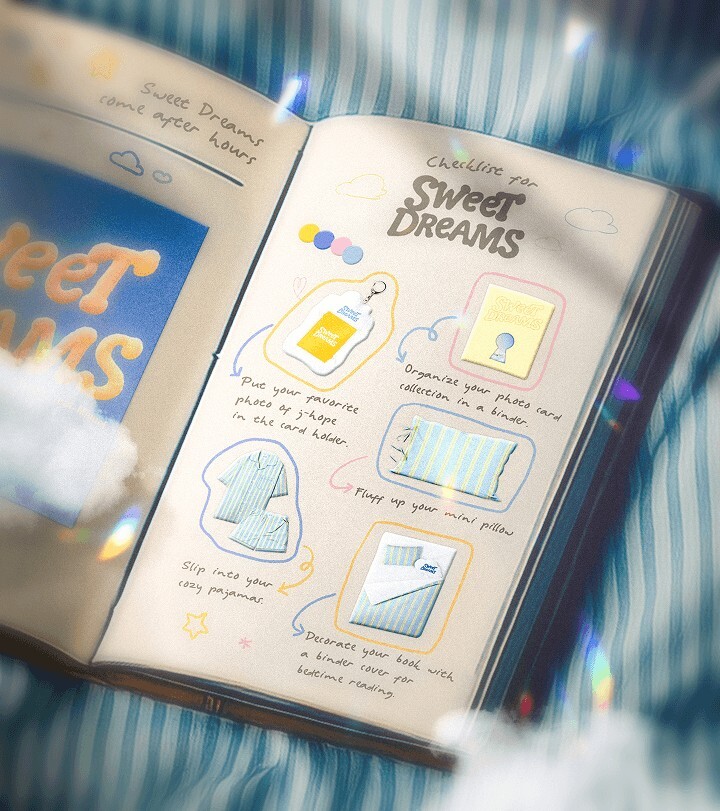 Sweet Dreams
come after hours
SWEET
DREAMS
Checklist for
SWEET
DREAMS
SWEET
DREAMS
SWEET
DREAMS
Put your favorite
photo of j-hope
in the card holder.
SWEET
DREAMS
Organize your photo card
collection in a binder.
Fluff up your mini pillow
Slip into your
cozy pajamas.
SWEET
DREAMS
Decorate your book with
a binder cover for
bedtime reading.